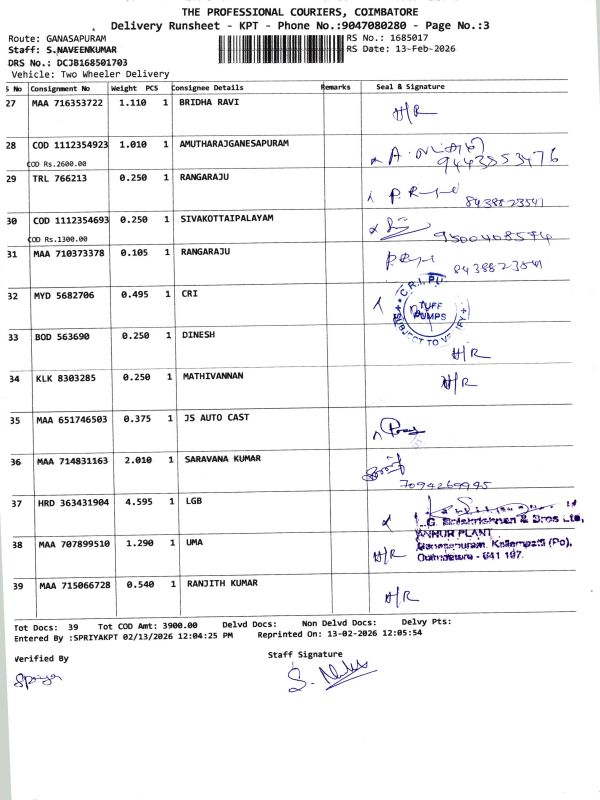 THE PROFESSIONAL COURIERS, COIMBATORE
Delivery Runsheet - KPT - Phone No.:9047080280 - Page No.:3
Route: GANASAPURAM RS No.: 1685017
Staff: S.NAVEENKUMAR RS Date: 13-Feb-2026
DRS No.: DCJB168501703
Vehicle: Two Wheeler Delivery
S No Consignment No Weight PCS Consignee Details Remarks Seal & Signature
27 MAA 716353722 1.110 1 BRIDHA RAVI H/R
28 COD 1112354923 1.010 1 AMUTHARAJGANESAPURAM A.
COD Rs.2600.00 9443853476
29 TRL 766213 0.250 1 RANGARAJU 8438823541
30 COD 1112354693 0.250 1 SIVAKOTTAIPALAYAM
COD Rs.1300.00 9500408594
31 MAA 710373378 0.105 1 RANGARAJU 8438823541
32 MYD 5682706 0.495 1 CRI
C.R.I. PU
TUFF
PUMPS
SUBJECT TO VERIFY
33 BOD 563690 0.250 1 DINESH H/R
34 KLK 8303285 0.250 1 MATHIVANNAN H/R
35 MAA 651746503 0.375 1 JS AUTO CAST
36 MAA 714831163 2.010 1 SARAVANA KUMAR
7094269995
37 HRD 363431904 4.595 1 LGB
L.G. Balakrishnan & Bros Ltd,
ANNUR PLANT
Ganesapuram, Kallampatti (Po),
Coimbatore - 641 107.
38 MAA 707899510 1.290 1 UMA H/R
39 MAA 715066728 0.540 1 RANJITH KUMAR H/R
Tot Docs: 39 Tot COD Amt: 3900.00 Delvd Docs: Non Delvd Docs: Delvy Pts:
Entered By :SPRIYAKPT 02/13/2026 12:04:25 PM Reprinted On: 13-02-2026 12:05:54
Verified By Staff Signature
Spriya S.